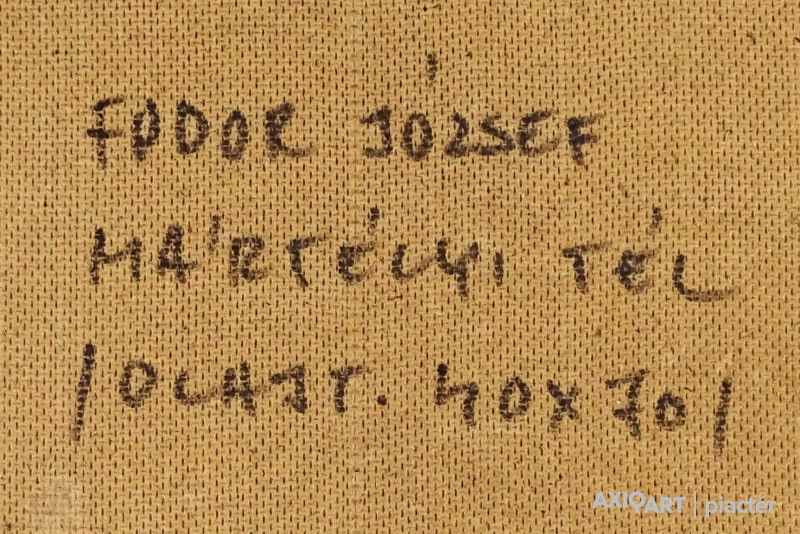 FODOR JÓZSEF
MÁRTÉLYI TÉL
/OLAJF. 40x70/
AXIOART | piactér